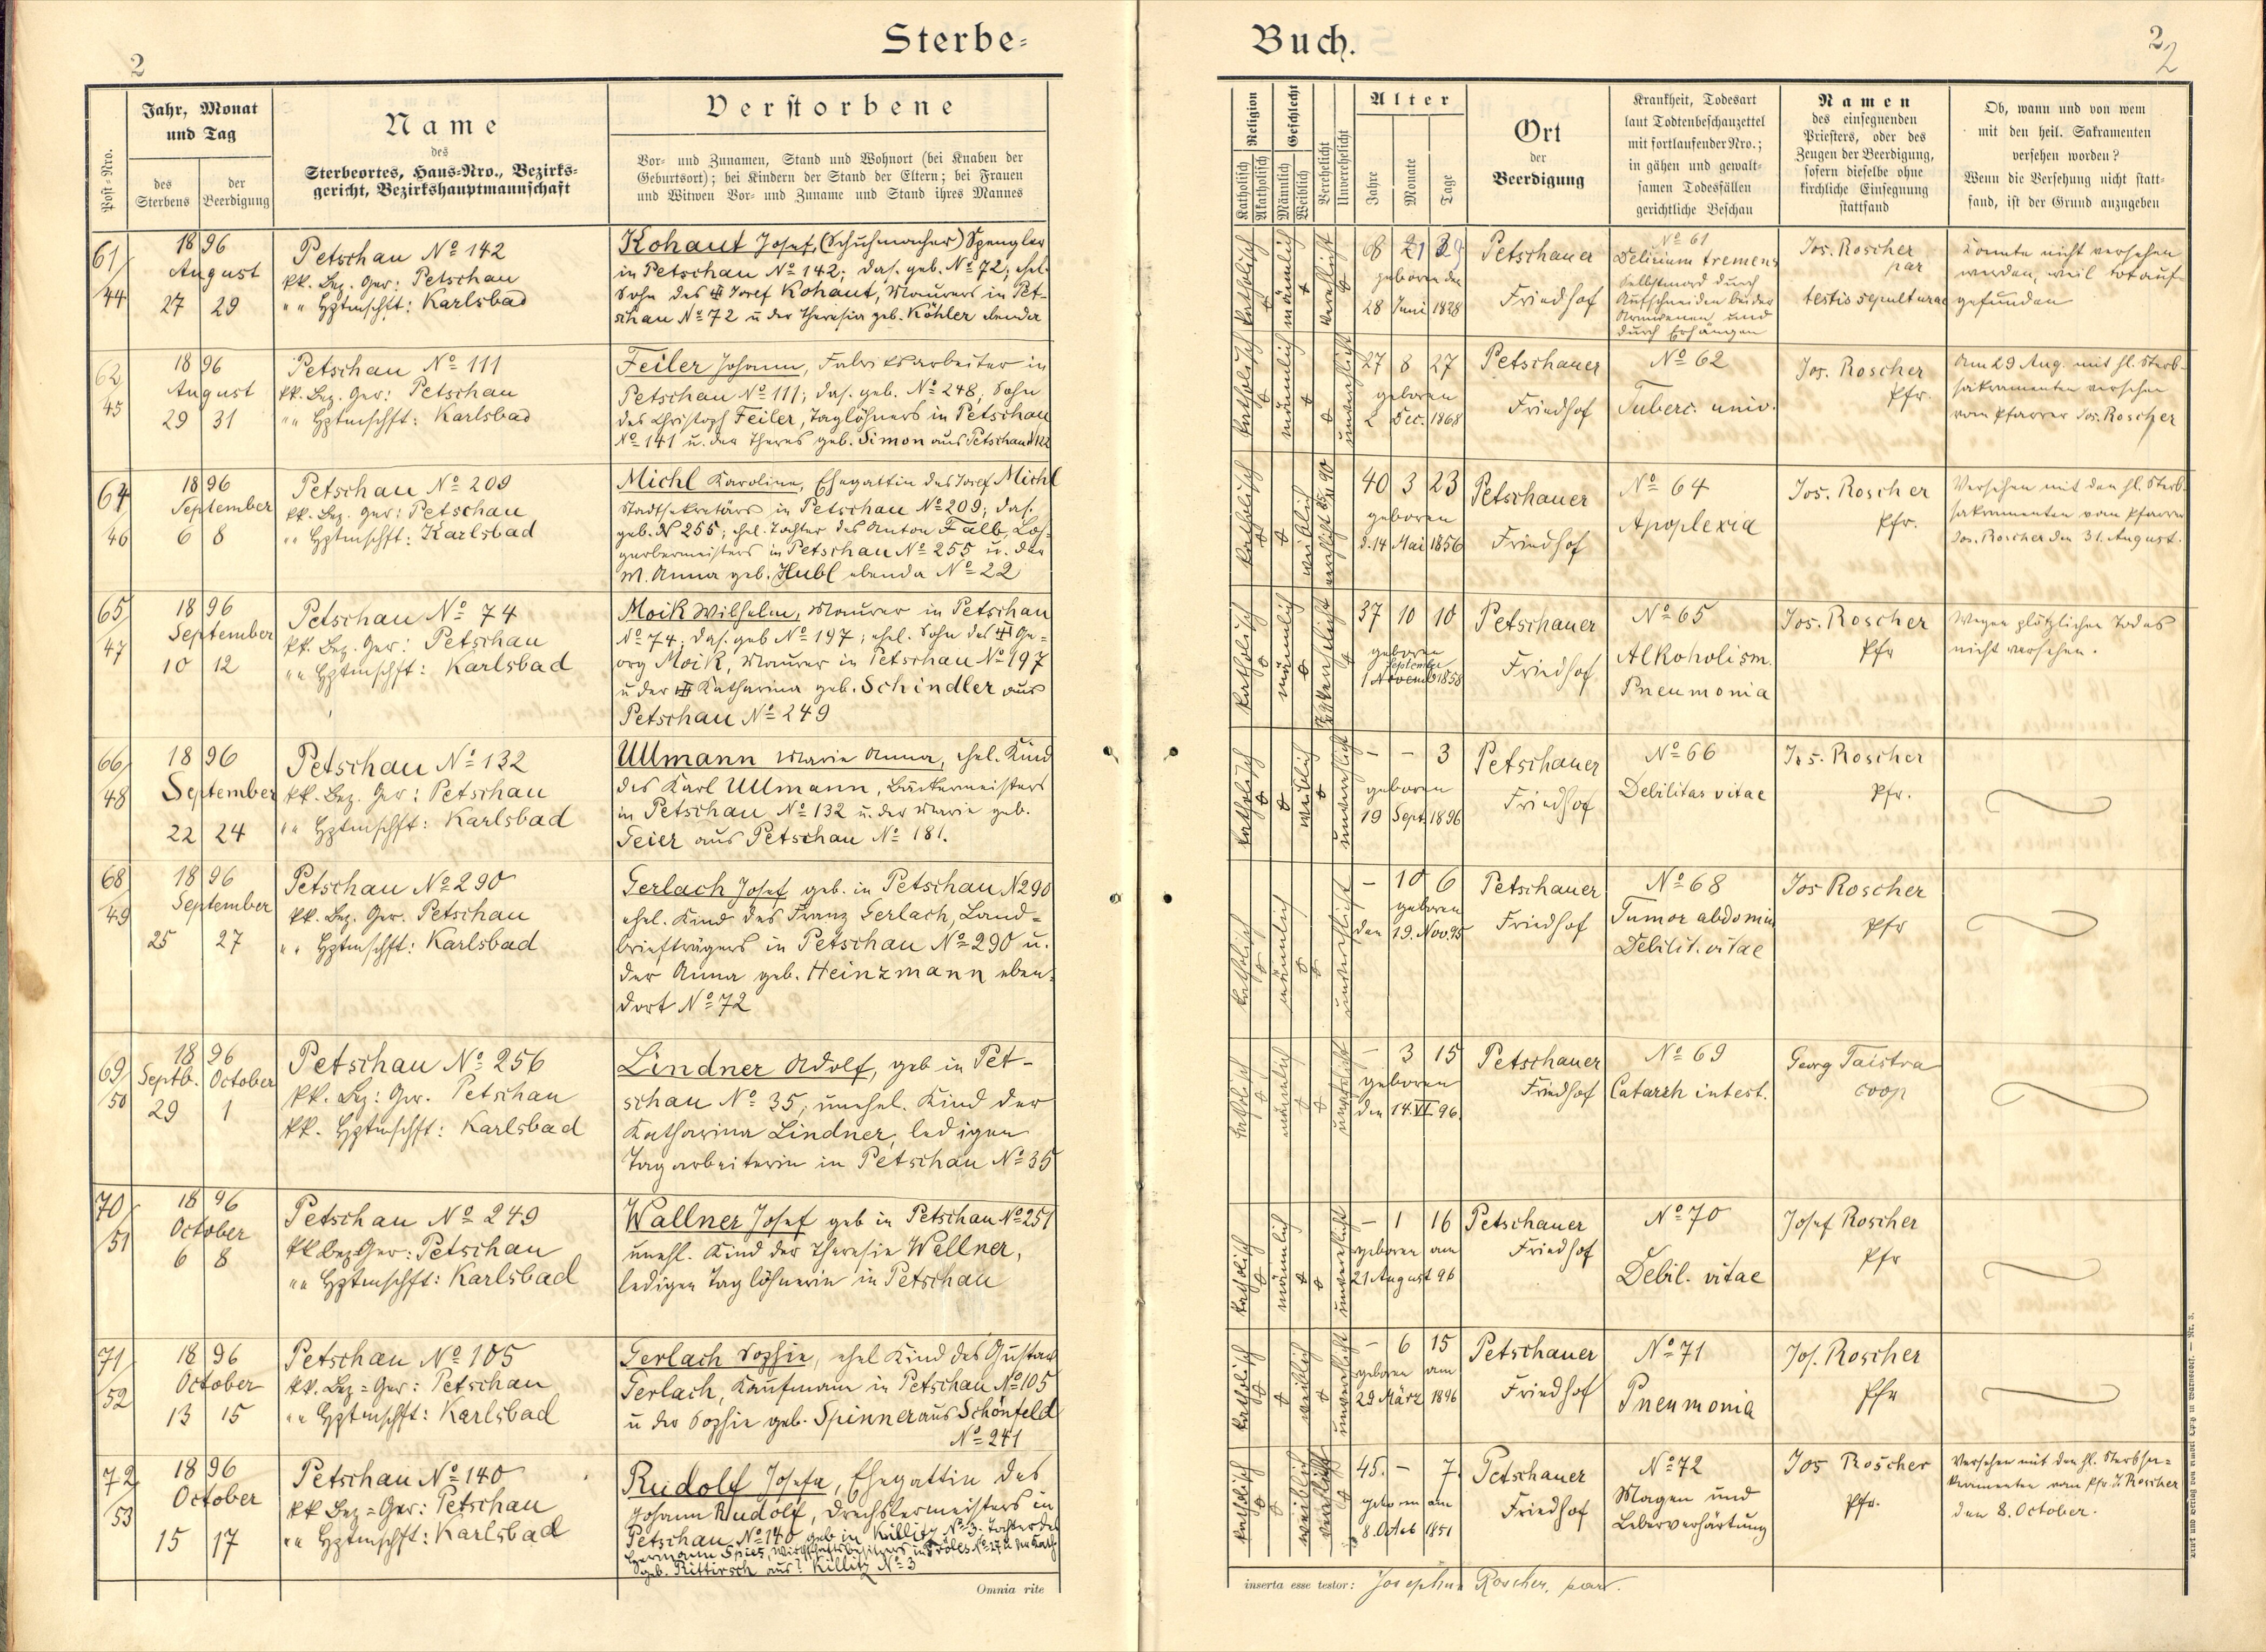 2
Sterbe-
Post-Nro.
Jahr, Monat
und Tag
des
Sterbens
der
Beerdigung
Name
des
Sterbeortes, Haus-Nro., Bezirks-
gericht, Bezirkshauptmannschaft
Verstorbene
Vor- und Zunamen, Stand und Wohnort (bei Knaben der
Geburtsort); bei Kindern der Stand der Eltern; bei Frauen
und Witwen Vor- und Zuname und Stand ihres Mannes
61/
44
1896
August
27 29
Petschau No 142
kk. Bez. Ger: Petschau
" " Hptmschft: Karlsbad
Kohaut Josef, (Schuhmacher) Spengler
in Petschau No 142; das. geb. No 72; ehel.
Sohn des Josef Kohaut, Maurers in Pet-
schau No 72 u der Theresia geb. Köhler ebenda
62/
45
1896
August
29 31
Petschau No 111
kk. Bez. Ger: Petschau
" " Hptmschft: Karlsbad
Feiler Johann, Fabriksarbeiter in
Petschau No 111; das. geb. No 248; Sohn
des Christoph Feiler, Taglöhners in Petschau
No 141 u. der Theres geb. Simon aus Petschau
64
46
1896
September
6 8
Petschau No 209
kk. Bez. Ger: Petschau
" " Hptmschft: Karlsbad
Michl Karoline, Ehegattin des Josef Michl
Stadtsekretärs in Petschau No 209; das.
geb. No 255; ehel. Tochter des Anton Falb, Loh-
gerbermeisters in Petschau No 255 u. der
M. Anna geb. Hubl ebenda No 22
65/
47
1896
September
10 12
Petschau No 74
kk. Bez. Ger: Petschau
" " Hptmschft: Karlsbad
Moik Wilhelm, Maurer in Petschau
No 74; das. geb No 197; ehel. Sohn des Ge-
org Moik, Maurer in Petschau No 197
u der Katharina geb. Schindler aus
Petschau No 249
66/
48
1896
September
22 24
Petschau No 132
kk. Bez. Ger: Petschau
" " Hptmschft: Karlsbad
Ullmann Marie Anna, ehel. Kind
des Karl Ullmann, Bäckermeisters
in Petschau No 132 u. der Marie geb.
Feier aus Petschau No 181.
68/
49
1896
September
25 27
Petschau No 290
kk. Bez. Ger. Petschau
" " Hptmschft: Karlsbad
Gerlach Josef geb. in Petschau N 290
ehel. Kind des Franz Gerlach, Land-
briefträgers in Petschau No 290 u.
der Anna geb. Heinzmann eben-
dort No 72
69/
50
1896
Septb. October
29 1
Petschau No 256
kk. Bez: Ger. Petschau
kk. Hptmschft: Karlsbad
Lindner Adolf, geb in Pet-
schau No 35, unehel. Kind der
Katharina Lindner, ledigen
Tagarbeiterin in Petschau No 35
70/
51
1896
October
6 8
Petschau No 249
kk Bez Ger: Petschau
" " Hptmschft: Karlsbad
Wallner Josef geb in Petschau No 251
unehl. Kind der Theresie Wallner,
ledigen Taglöhnerin in Petschau
71/
52
1896
October
13 15
Petschau No 105
kk. Bez = Ger: Petschau
" " Hptmschft: Karlsbad
Gerlach Sophie, ehel Kind des Gustav
Gerlach, Kaufmann in Petschau No 105
u der Sophie geb. Spinner aus Schönfeld
No 241
72/
53
1896
October
15 17
Petschau No 140
kk Bez = Ger: Petschau
" " Hptmschft: Karlsbad
Rudolf Josefa, Ehegattin des
Johann Rudolf, Drechslermeisters in
Petschau No 140 geb in Killitz No 3. Tochter des
Hermann Spies, Wirthschaftsbesitzers in
geb. Rittirsch aus Killitz No 3
Omnia rite
Buch.
2
2
Religion
Katholisch
Akatholisch
Geschlecht
Männlich
Weiblich
Verehelicht
Unverehelicht
Alter
Jahre
Monate
Tage
Ort
der
Beerdigung
Krankheit, Todesart
laut Todtenbeschauzettel
mit fortlaufender Nro.;
in gähen und gewalt-
samen Todesfällen
gerichtliche Beschau
Namen
des einsegnenden
Priesters, oder des
Zeugen der Beerdigung,
sofern dieselbe ohne
kirchliche Einsegnung
stattfand
Ob, wann und von wem
mit den heil. Sakramenten
versehen worden?
Wenn die Versehung nicht statt-
fand, ist der Grund anzugeben
katholisch
männlich
verehlicht
geboren den
28 Juni 1828
Petschauer
Friedhof
No 61
Delirium tremens
Selbstmord durch
Aufschneiden beider
Armvenen und
durch Erhängen
Jos. Roscher
par
testis sepulturae
Konnte nicht versehen
werden, weil tot auf-
gefunden
katholisch
männlich
unverehlicht
27 8 27
geboren
2 Dec. 1868
Petschauer
Friedhof
No 62
Tuberc. univ.
Jos. Roscher
Pfr.
Am 29 Aug. mit hl. Sterb-
sakramenten versehen
vom Pfarrer Jos. Roscher
katholisch
weiblich
40 3 23
geboren
d. 14 Mai 1856
Petschauer
Friedhof
No 64
Apoplexia
Jos. Roscher
Pfr.
Versehen mit den hl. Sterb-
sakramenten vom Pfarrer
Jos. Roscher den 31. August.
katholisch
männlich
37 10 10
geboren
September
1 Novemb 1858
Petschauer
Friedhof
No 65
Alkoholism.
Pneumonia
Jos. Roscher
Pfr
Wegen plötzlichen Todes
nicht versehen.
katholisch
weiblich
unverehlicht
- - 3
geboren
19 Sept. 1896
Petschauer
Friedhof
No 66
Debilitas vitae
Jos. Roscher
Pfr.
katholisch
männlich
unverehlicht
- 10 6
geboren
den 19. Nov. 95
Petschauer
Friedhof
No 68
Tumor abdomin
Debilit. vitae
Jos Roscher
Pfr
katholisch
männlich
- 3 15
geboren
den 14. VI. 96.
Petschauer
Friedhof
No 69
Catarrh intest.
Georg Taistra
coop
katholisch
männlich
unverehlicht
- 1 16
geboren am
21 August 96
Petschauer
Friedhof
No 70
Debil. vitae
Josef Roscher
Pfr
katholisch
weiblich
unverehlicht
- 6 15
geboren am
29 März 1896
Petschauer
Friedhof
No 71
Pneumonia
Jos. Roscher
Pfr
katholisch
weiblich
verehlicht
45. - 7.
geboren am
8. Octob 1851
Petschauer
Friedhof
No 72
Magen und
Leberverhärtung
Jos Roscher
Pfr.
Versehen mit den hl. Sterbsa-
kramenten vom Pfr. J. Roscher
den 8. October.
inserta esse testor: Josephus Roscher, par.